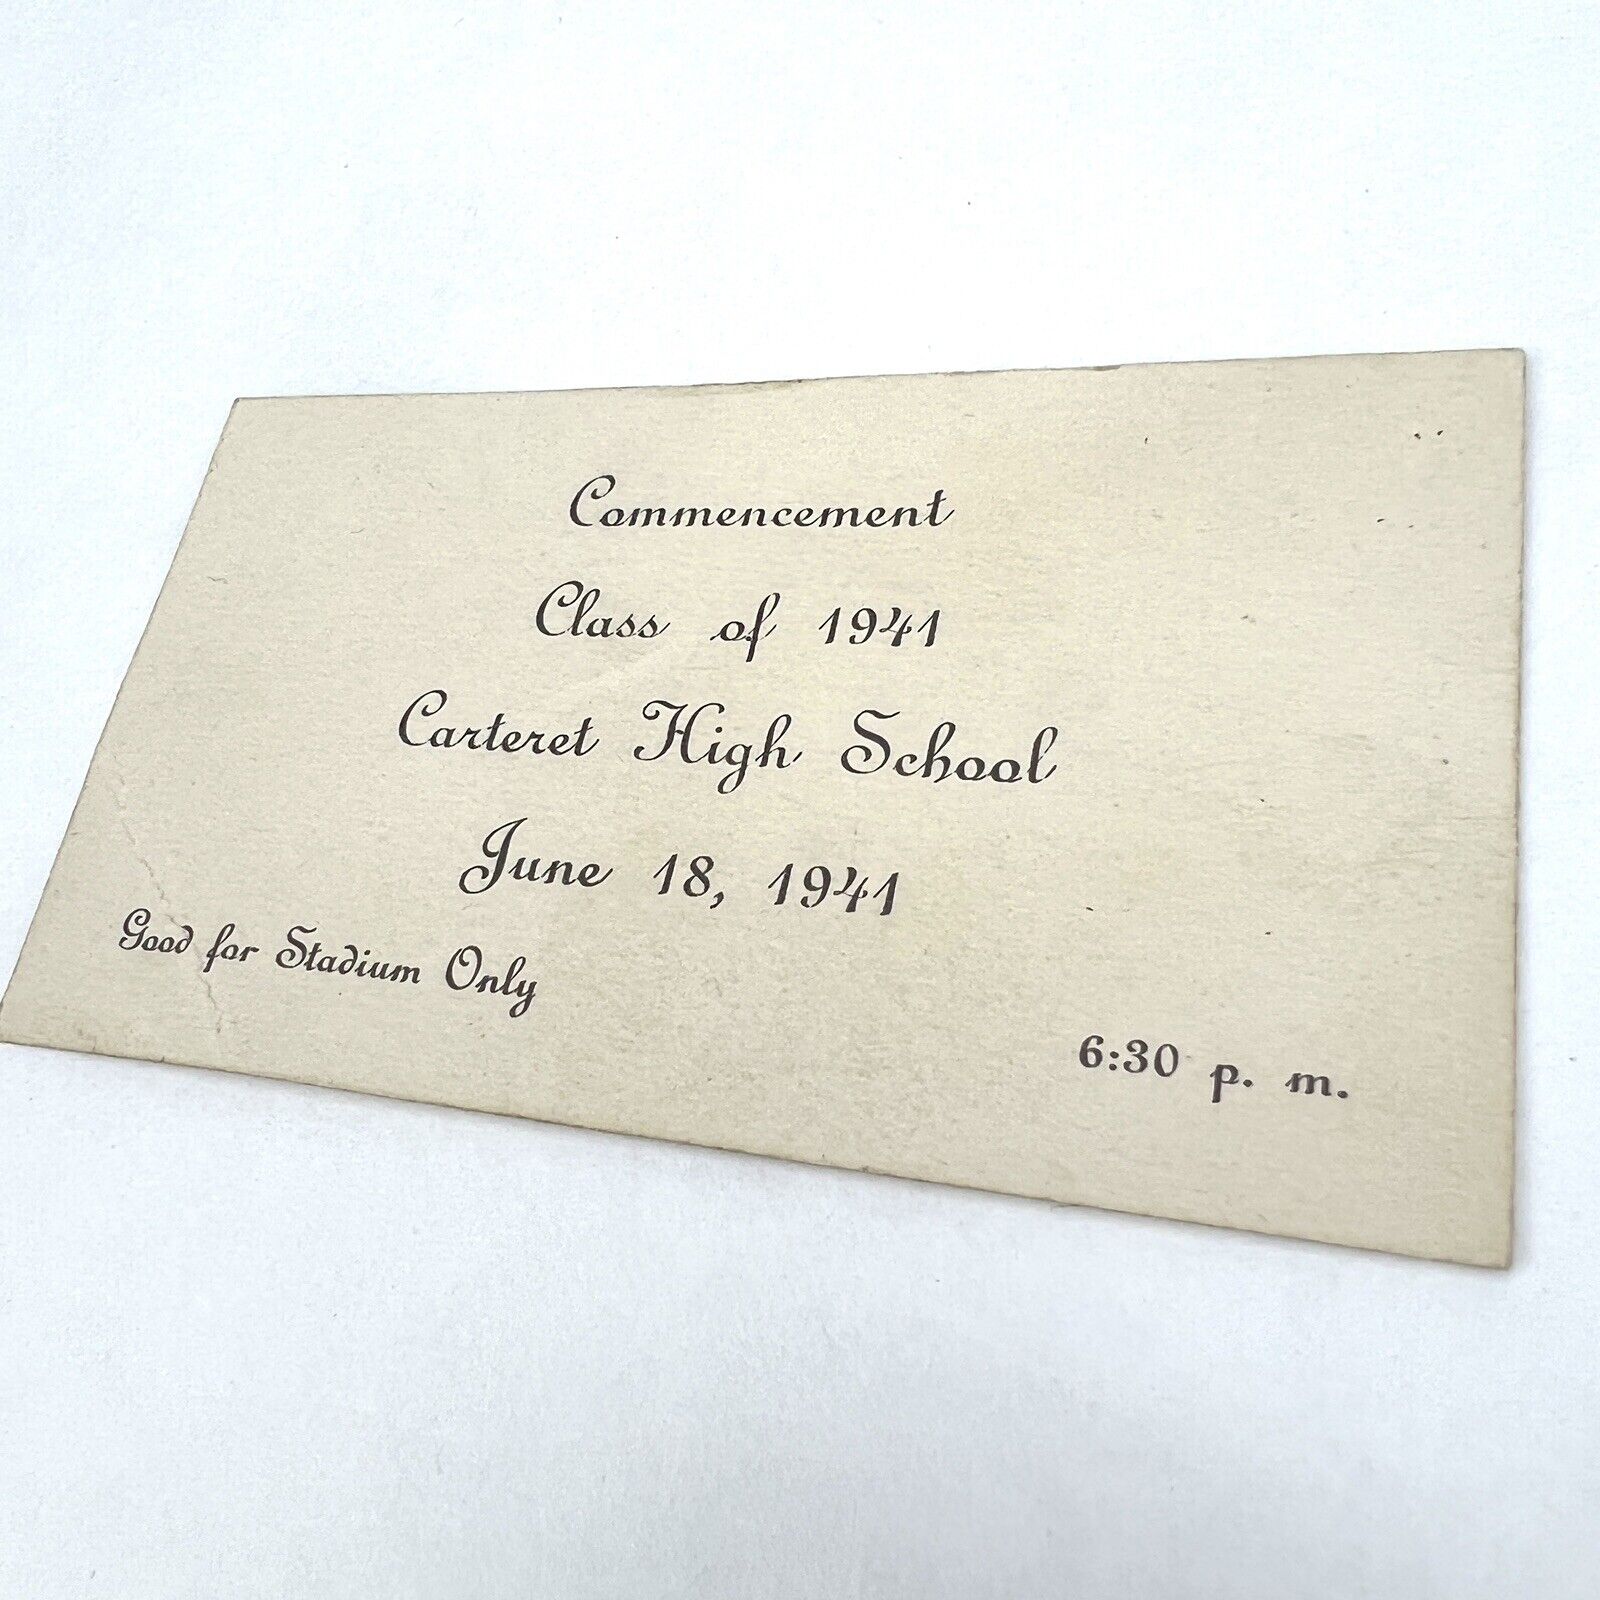 Commencement
Class of 1941
Carteret High School
June 18, 1941
Good for Stadium Only
6:30 p. m.